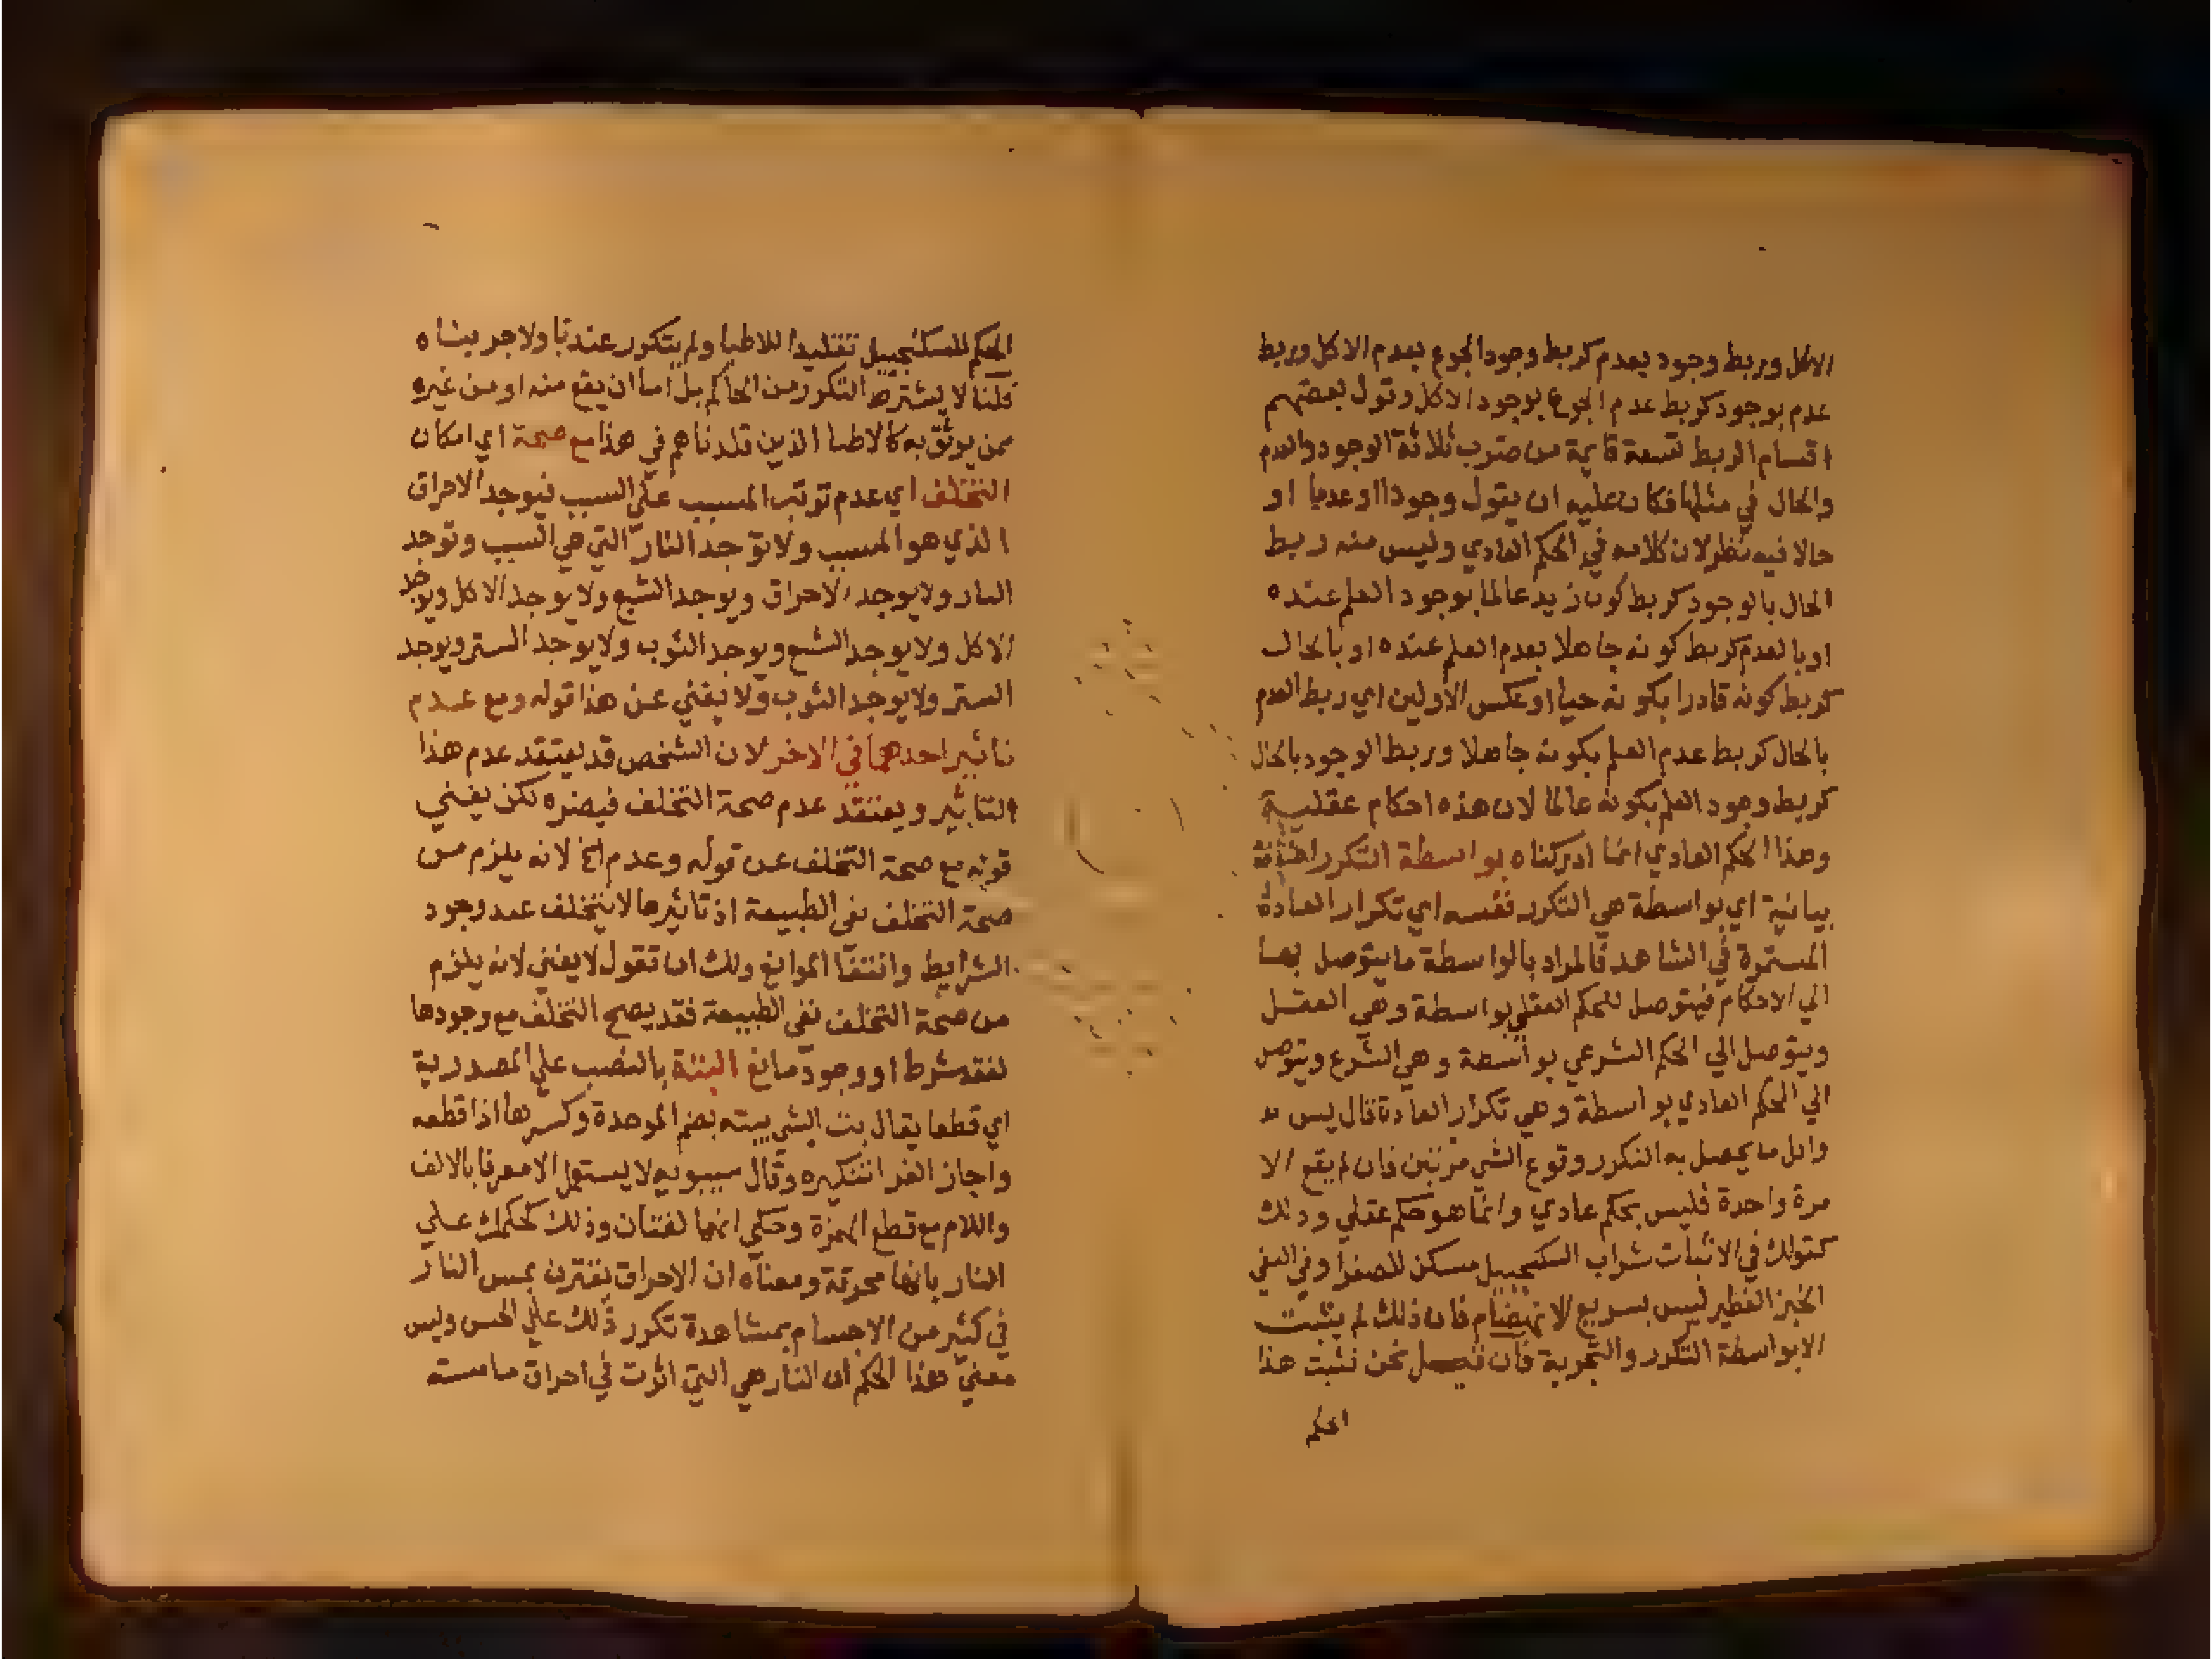 الاكل وربط وجود بعدم كربط وجود الجوع بعدم الاكل وربط
عدم بوجود كربط عدم الجوع بوجود الاكل وقول بعضهم
اقسام الربط تسعة قايمة من ضرب ثلاثة الوجود والعدم
والحال في مثلها فكان عليه ان يقول وجودا او عدما او
حالا فيه نظر لان كلامه في الحكم العادي وليس منه ربط
الحال بالوجود كربط كون زيد عالما بوجود العلم عنده
او بالعدم كربط كونه جاهلا بعدم العلم عنده او بالحال
كربط كونه قادرا بكونه حيا او عكس الاولين اي ربط العدم
بالحال كربط عدم العلم بكونه جاهلا وربط الوجود بالحال
كربط وجود العلم بكونه عالما لان هذه احكام عقلية
وهذا الحكم العادي انما ادركناه بواسطة التكرر اضافة
بيانية اي بواسطة هي التكرر نفسه اي تكرار العادة
المستمرة في الشاهد فالمراد بالواسطة ما يتوصل بها
الي الاحكام فيتوصل للحكم العقلي بواسطة وهي العقل
ويتوصل الي الحكم الشرعي بواسطة وهي الشرع ويتوصل
الي الحكم العادي بواسطة وهي تكرار العادة قال يس
واقل ما يحصل به التكرر وقوع الشي مرتين فان لم يقع الا
مرة واحدة فليس بحكم عادي وانما هو حكم عقلي وذلك
كقولك في الاثبات شراب السكنجبيل مسكن للصفرا وفي النفي
الخبز الفطير ليس بسريع الانهضام فان ذلك لم يثبت
الا بواسطة التكرر والتجربة فان قيل نحن نثبت هذا
الحكم
الحكم للسكنجبيل تقليدا للاطبا ولم يتكرر عندنا ولا جربناه
قلنا لا يشترط التكرر من الحاكم بل اما ان يقع منه او من غيره
ممن يوثق به كالاطبا الذين قلدناهم في هذا مع صحة اي امكان
التخلف اي عدم ترتب المسبب علي السبب فيوجد الاحراق
الذي هو المسبب ولا توجد النار التي هي السبب وتوجد
النار ولا يوجد الاحراق ويوجد الشبع ولا يوجد الاكل ويوجد
الاكل ولا يوجد الشبع ويوجد الثوب ولا يوجد الستر ويوجد
الستر ولا يوجد الثوب ولا يغني عن هذا قوله ومع عدم
تاثير احدهما في الاخر لان الشخص قد يعتقد عدم هذا
التاثير ويعتقد عدم صحة التخلف فيضره لكن يغني
قوله مع صحة التخلف عن قوله وعدم الخ لانه يلزم من
صحة التخلف نفي الطبيعة اذ تاثيرها لا يتخلف عند وجود
الشرايط وانتفا الموانع ولك ان تقول لا يغني لانه يلزم
من صحة التخلف نفي الطبيعة فقد يصح التخلف مع وجودها
لفقد شرط او وجود مانع البتة بالنصب علي المصدرية
اي قطعا يقال بت الشي يبته بضم الموحدة وكسرها اذا قطعه
واجاز الفرا تنكيره وقال سيبويه لا يستعمل الا معرفا بالالف
واللام مع قطع الهمزة وحكي انهما لغتان وذلك كحكمك علي
النار بانها محرقة ومعناه ان الاحراق يقترن بمس النار
في كثير من الاجسام بمشاهدة تكرر ذلك علي الحس وليس
معني هذا الحكم ان النار هي التي اثرت في احراق ما مسته